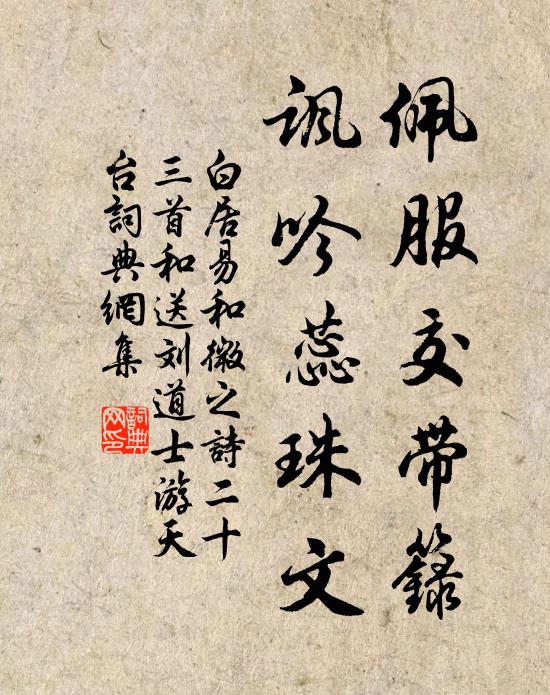 佩服交带籙
讽吟蕊珠文
白居易和微之詩二十
三首和送刘道士游天
台詞典網集
詞典网印